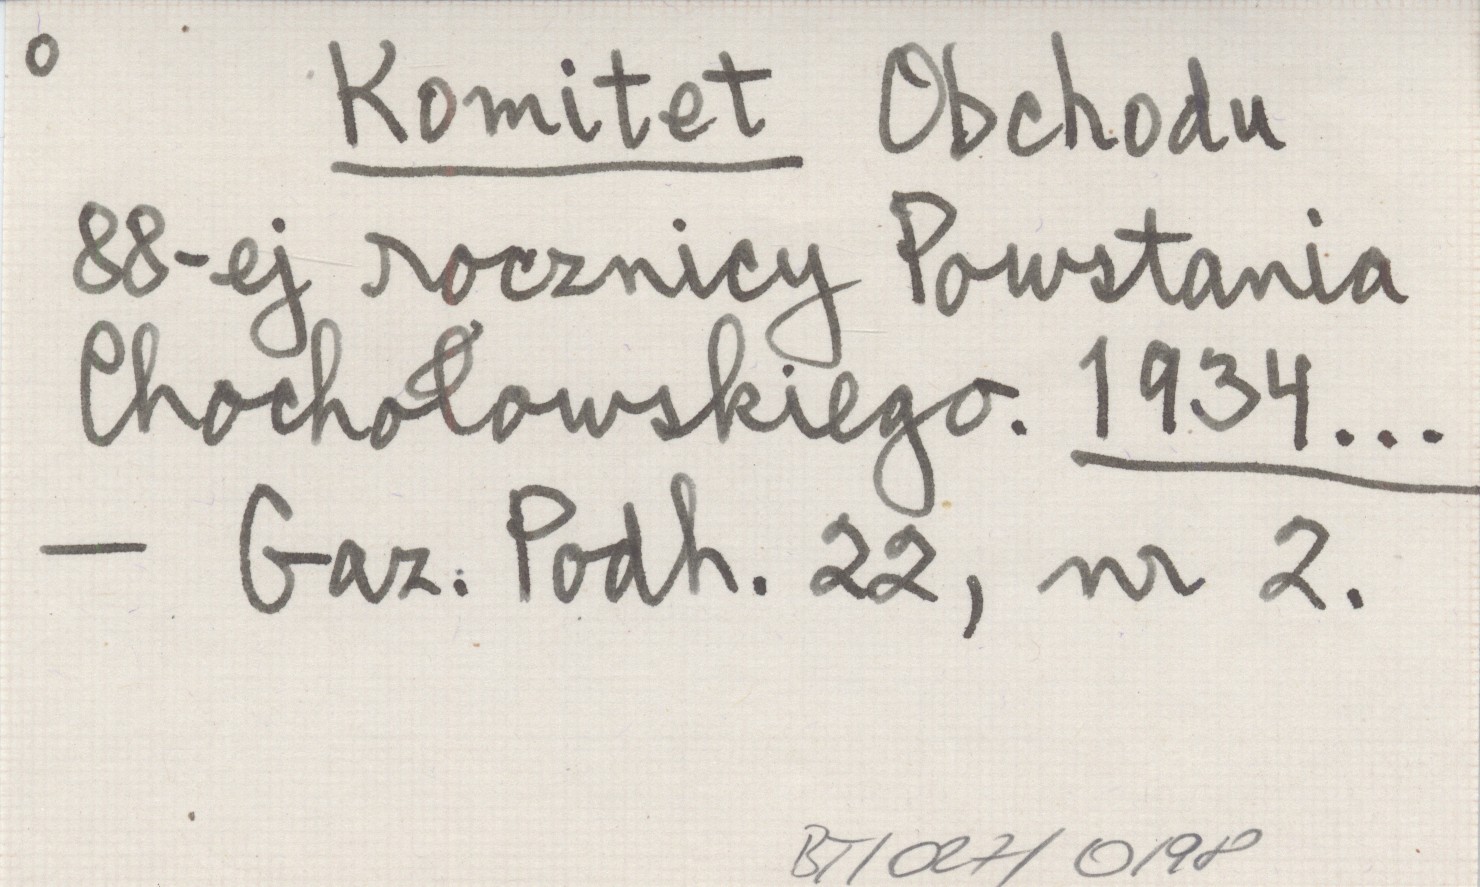 o Komitet Obchodu
88-ej rocznicy Powstania
Chochołowskiego. 1934...
— Gaz. Podh. 22, nr 2.
BT/027/0198